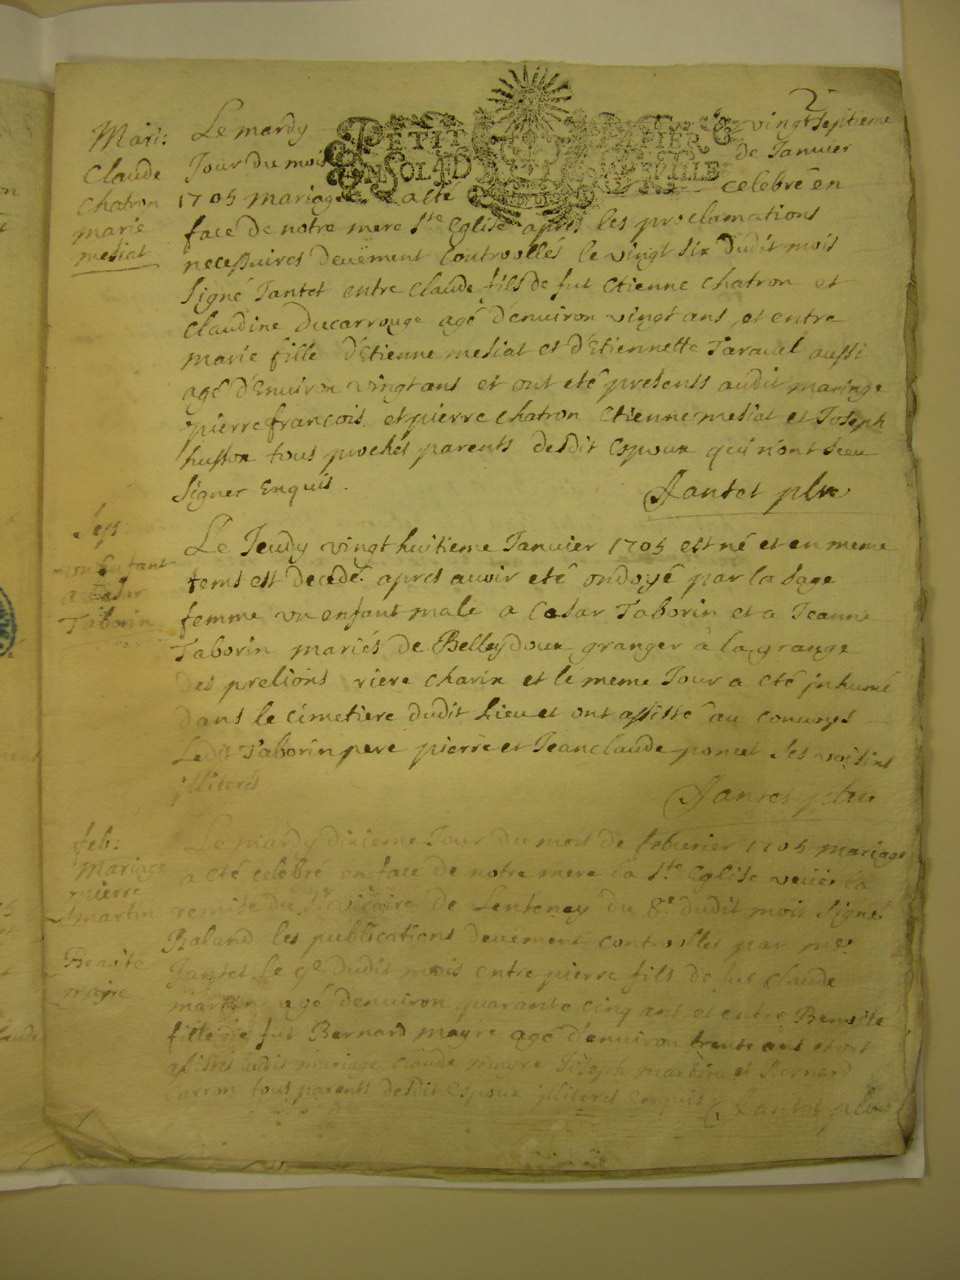 2
Mari:
Claude
Chatron
marie
mesiat
Le mardy vingt septieme
Jour du mois de Janvier
1705 mariage a a été celebré en
PETIT PAPIER
SOL 4 D
VILLE
face de notre mere Ste Eglise apres les proclamations
necessaires deuëment Controollés le vingt six dudit mois
Signé Jantet entre Claude fils de fut Etienne Chatron et
Claudine Ducarrouge agé d'environ vingt ans et entre
marie fille d'Etienne mesiat et d'Etiennette Taravel aussi
agé d'Environ vingt ans et ont eté presents audit mariage
pierre francois et pierre chatron Etienne mesiat et Joseph
husson tous prochés parents desdit Espoux qui n'ont sceu
Signer Enquis.
Jantet plre
Sep
mon Enfant
a Cesar
Taborin
Le Jeudy vingt huitieme Janvier 1705 est né et en meme
tems est decedé apres auoir eté ondoyé par la sage
femme vn enfant male a Cesar Taborin et a Jeanne
Taborin mariés de Belleydoux granger à la grange
des prelions riere charix et le meme Jour a eté inhumé
dans le cimetiere dudit Lieu et ont assisté au convoys
Ledit Taborin pere pierre et Jean claude poncet ses voisins
illiterés
Jantet plre
feb:
Mariage
pierre
martin
Benoite
mayre
Le mardy dixieme Jour du mois de feburier 1705 mariage
a eté celebré en face de notre mere la Ste Eglise veüe la
remise du Sr vicaire de Lentenay du 8e dudit mois Signé
Baland les publications deuement controllés par me
Jantet le 9e dudit mois entre pierre fils de fut Claude
martin agé d'environ quarante cinq ans et entre Benoite
fille de fut Bernard mayre agé d'environ trente ans et ont
assistés audit mariage claude mayre Joseph martin et Bernard
tous parents desdit espoux illiterés enquis Jantet plre